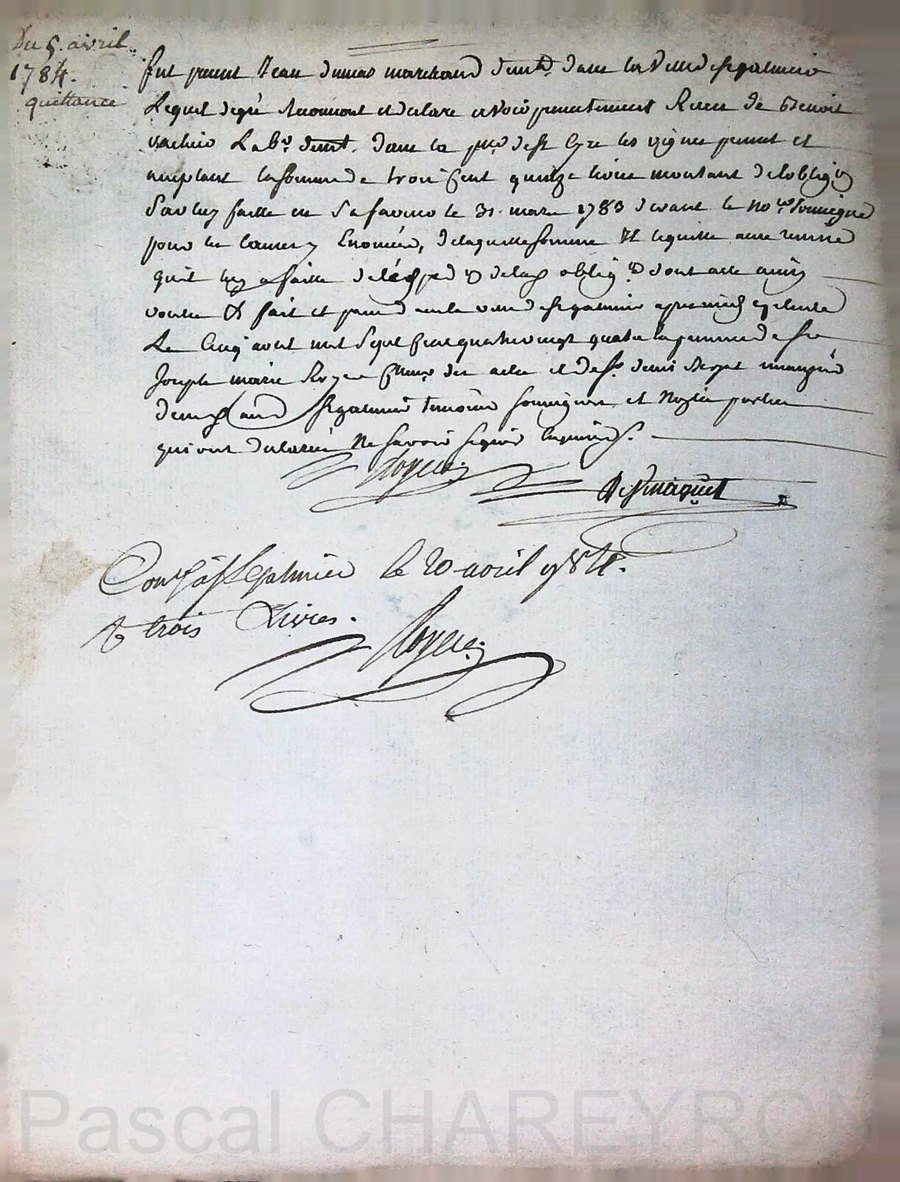 Du 5. avril
1784.
quittance
fut present Jean dumas marchand demt. dans la Ville de st galmier
Lequel de gré reconnoit et declare avoir presentement Recu de Benoit
vachier Labr. demt. dans la psse de st Cyr les vignes present et
acceptant la somme de trois cent quinze livres montant de lobligon
par luy faitte en sa faveur le 31. mars 1783 devant le nore soussigné
pour les causes y Enoncées, de laquelle somme Il lequitte avec remise
quil luy a faitte de lexpedon de lad obligon dont acte ainsy
voulu & fait et passé en la ville de st galmier apres midy
Le Cinq avril mil Sept Cent quatre vingt quatre en presence de sr
Joseph marie et de sr denis
st galmier temoins soussignés et Non les parties
qui ont declarées Ne Savoir signer Enquises.
Royer
Conlé à st Galmier le 20 avril 1784.
R trois Livres.
Royer
Pascal CHAREYRON